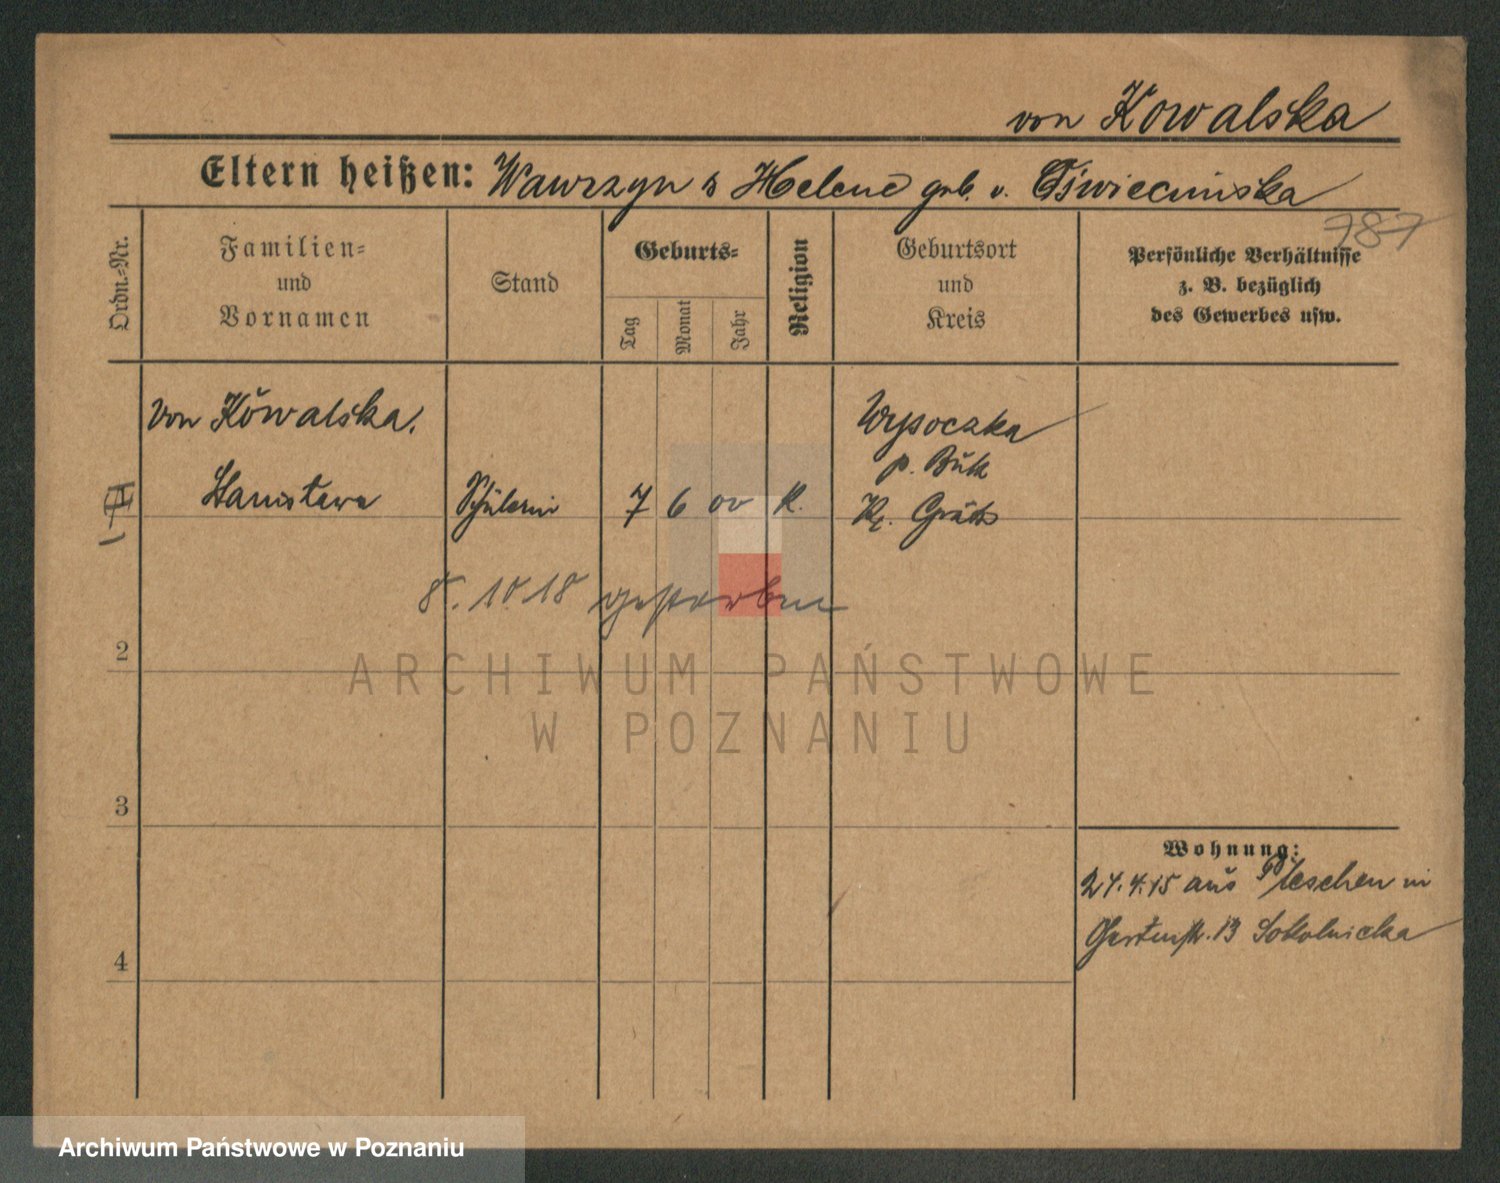 von Kowalska
Eltern heißen: Wawrzyn & Helene geb. v. Oświecimska
787
Ordn.-Nr.
Familien- und Vornamen
Stand
Geburts-
Tag
Monat
Jahr
Religion
Geburtsort und Kreis
Persönliche Verhältnisse
z. B. bezüglich
des Gewerbes usw.
von Kowalska.
Stanisława
Schülerin
7 6 00 k.
Wysoczka
p. Buk
Kr. Grätz
8. 10 18 gestorben
2
ARCHIWUM PAŃSTWOWE
W POZNANIU
3
Wohnung:
24.4.15 aus Pleschen in
Gartenstr. 13 Sokolnicka
4
Archiwum Państwowe w Poznaniu